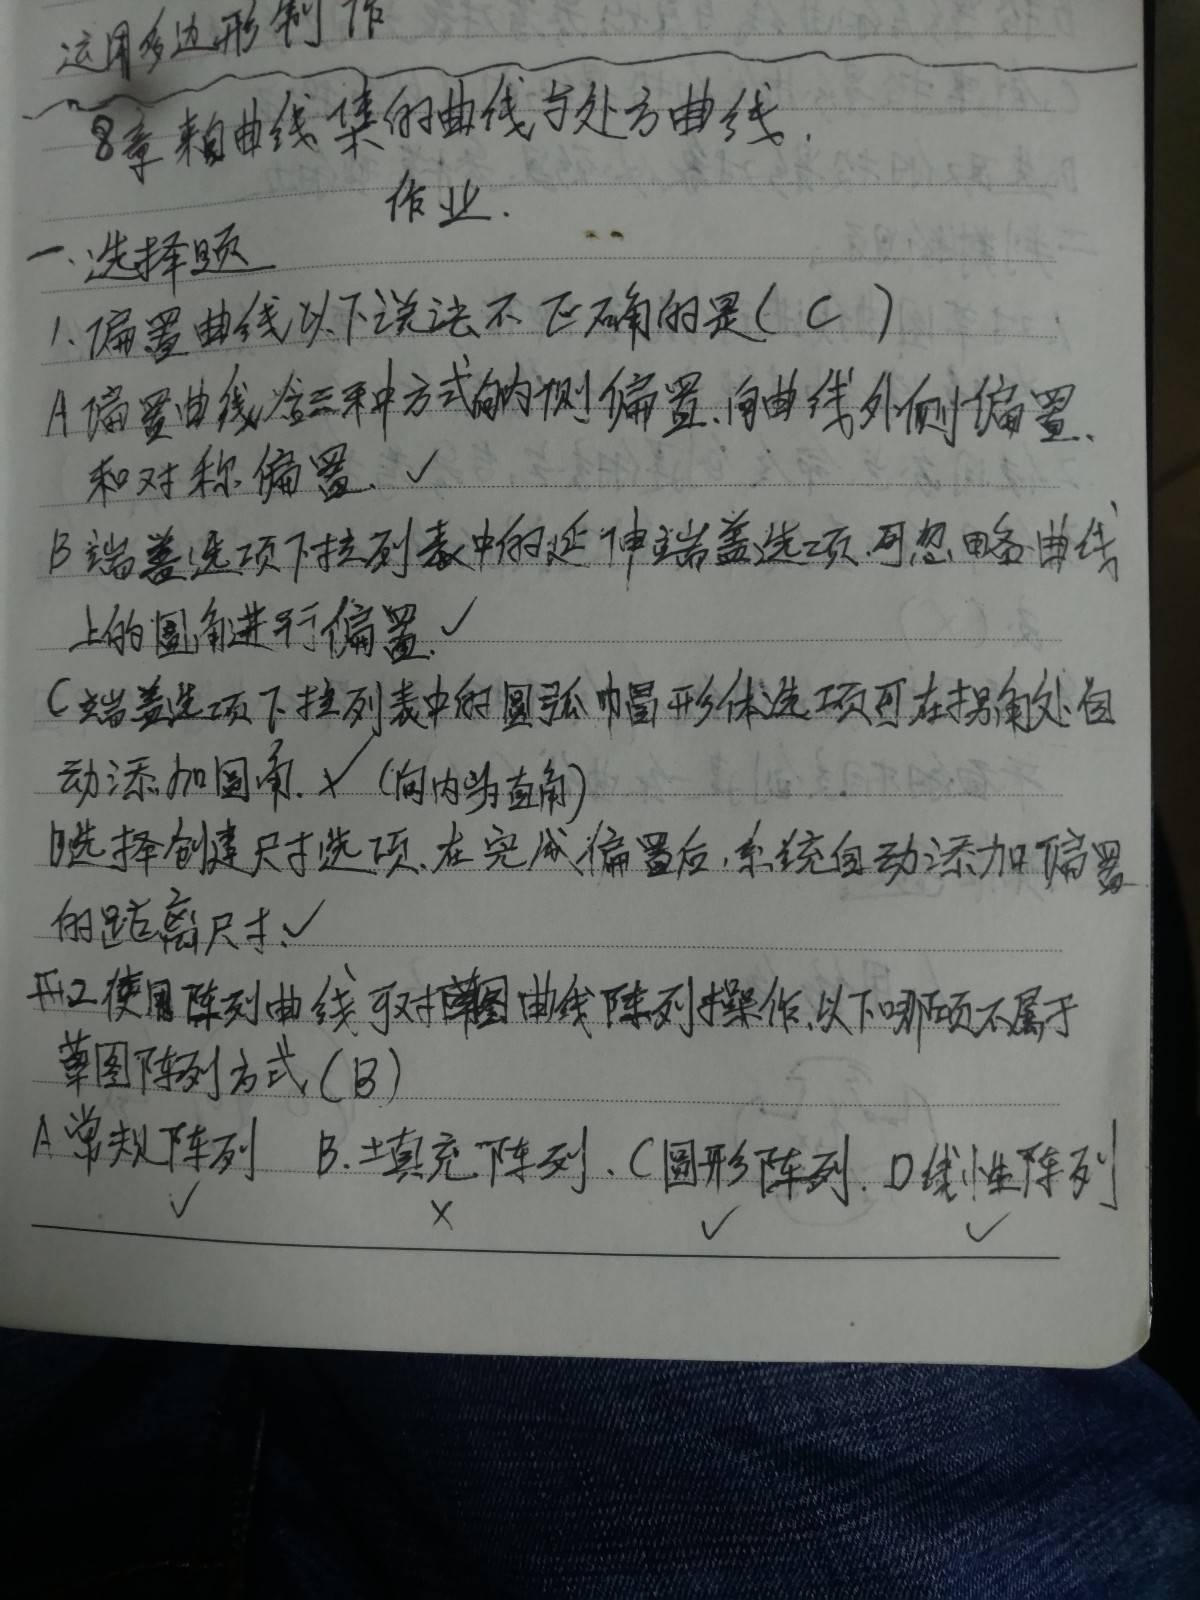 运用多边形制作
8章来自曲线集的曲线与处方曲线.
作业.
一.选择题
1.偏置曲线以下说法不正确的是(C)
A偏置曲线含三种方式向内侧偏置、向曲线外侧偏置、
和对称偏置.✓
B端盖选项下拉列表中的延伸端盖选项.可忽略曲线
上的圆角进行偏置.✓
C端盖选项下拉列表中的圆弧帽形体选项可在拐角处自
动添加圆角.× (向内为直角)
D选择创建尺寸选项.在完成偏置后,系统自动添加偏置
的距离尺寸.✓
2使用阵列曲线可对草图曲线阵列操作,以下哪项不属于
草图阵列方式(B)
A常规阵列 B.填充阵列.C圆形阵列.D线性阵列
✓ × ✓ ✓